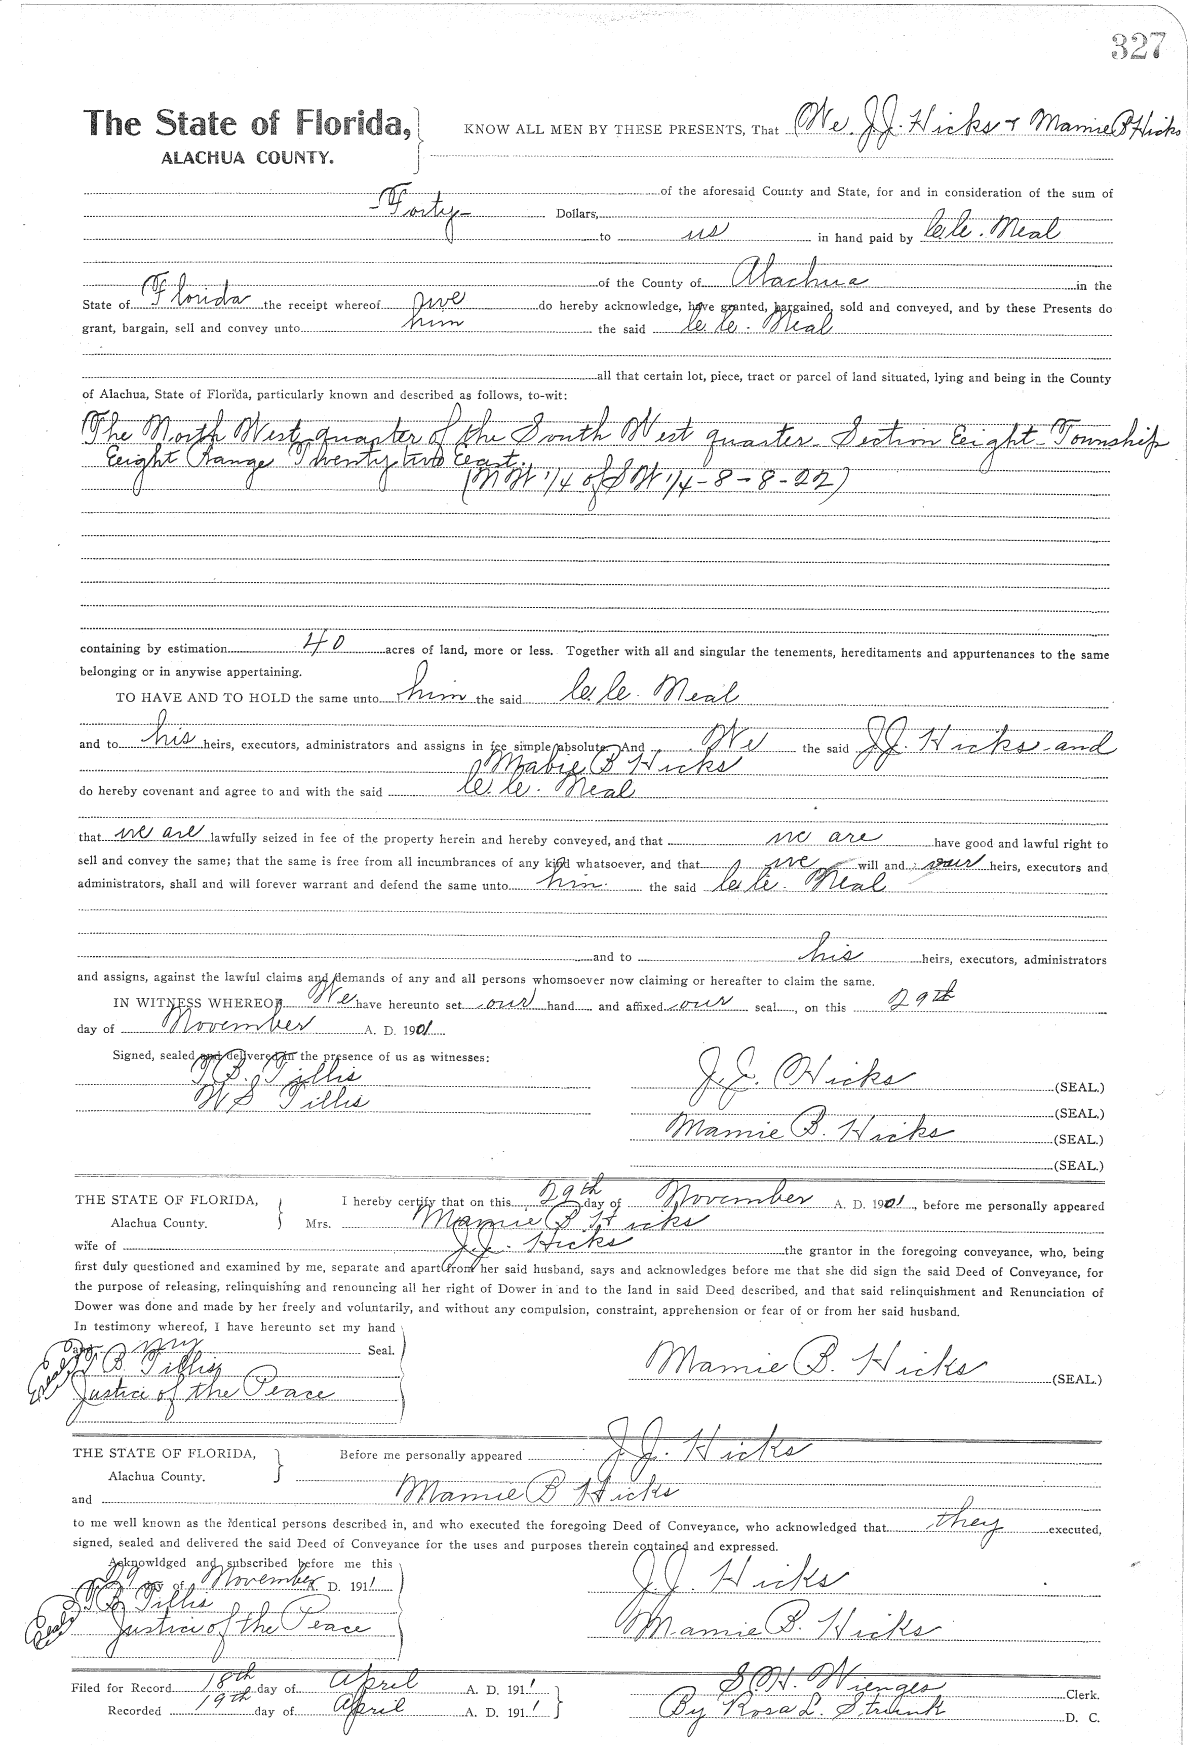 327
The State of Florida,
ALACHUA COUNTY.
KNOW ALL MEN BY THESE PRESENTS, That We, J.J. Hicks & Mamie B Hicks
of the aforesaid County and State, for and in consideration of the sum of
-Forty- Dollars,
to us in hand paid by C.C. Neal
of the County of Alachua in the
State of Florida the receipt whereof we do hereby acknowledge, have granted, bargained, sold and conveyed, and by these Presents do
grant, bargain, sell and convey unto him the said C.C. Neal
all that certain lot, piece, tract or parcel of land situated, lying and being in the County
of Alachua, State of Florida, particularly known and described as follows, to-wit:
The North West quarter of the South West quarter - Section Eight - Township
Eight Range Twenty two East.
(NW 1/4 of SW 1/4 - 8 - 8 - 22)
containing by estimation 40 acres of land, more or less. Together with all and singular the tenements, hereditaments and appurtenances to the same
belonging or in anywise appertaining.
TO HAVE AND TO HOLD the same unto him the said C.C. Neal
and to his heirs, executors, administrators and assigns in fee simple absolute. And We the said J.J. Hicks and
Mabie B Hicks
do hereby covenant and agree to and with the said C.C. Neal
that we are lawfully seized in fee of the property herein and hereby conveyed, and that we are have good and lawful right to
sell and convey the same; that the same is free from all incumbrances of any kind whatsoever, and that we will and our heirs, executors and
administrators, shall and will forever warrant and defend the same unto him. the said C.C. Neal
and to his heirs, executors, administrators
and assigns, against the lawful claims and demands of any and all persons whomsoever now claiming or hereafter to claim the same.
IN WITNESS WHEREOF We have hereunto set our hand and affixed our seal, on this 29th
day of November A. D. 1901.
Signed, sealed and delivered in the presence of us as witnesses:
T.B. Tillis
W S Tillis
J.J. Hicks (SEAL.)
(SEAL.)
Mamie B. Hicks (SEAL.)
(SEAL.)
THE STATE OF FLORIDA,
Alachua County.
I hereby certify that on this 29th day of November A. D. 1901, before me personally appeared
Mrs. Mamie B. Hicks
wife of J.J. Hicks the grantor in the foregoing conveyance, who, being
first duly questioned and examined by me, separate and apart from her said husband, says and acknowledges before me that she did sign the said Deed of Conveyance, for
the purpose of releasing, relinquishing and renouncing all her right of Dower in and to the land in said Deed described, and that said relinquishment and Renunciation of
Dower was done and made by her freely and voluntarily, and without any compulsion, constraint, apprehension or fear of or from her said husband.
In testimony whereof, I have hereunto set my hand
and my Seal.
(Seal) T B. Tillis,
Justice of the Peace
Mamie B. Hicks (SEAL.)
THE STATE OF FLORIDA,
Alachua County.
Before me personally appeared J.J. Hicks
and Mamie B Hicks
to me well known as the identical persons described in, and who executed the foregoing Deed of Conveyance, who acknowledged that they executed,
signed, sealed and delivered the said Deed of Conveyance for the uses and purposes therein contained and expressed.
Acknowldged and subscribed before me this
29 day of November A. D. 1911
(Seal) T B Tillis
Justice of the Peace
J.J. Hicks
Mamie B. Hicks
Filed for Record 18th day of April A. D. 1911
Recorded 19th day of April A. D. 1911
S.H. Wienges Clerk.
By Rosa L. Strunk D. C.